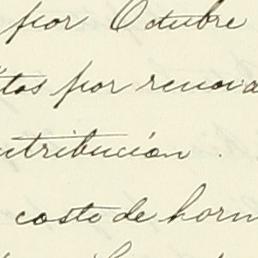 por Octubre
por renova
ntribución.
coste de horn